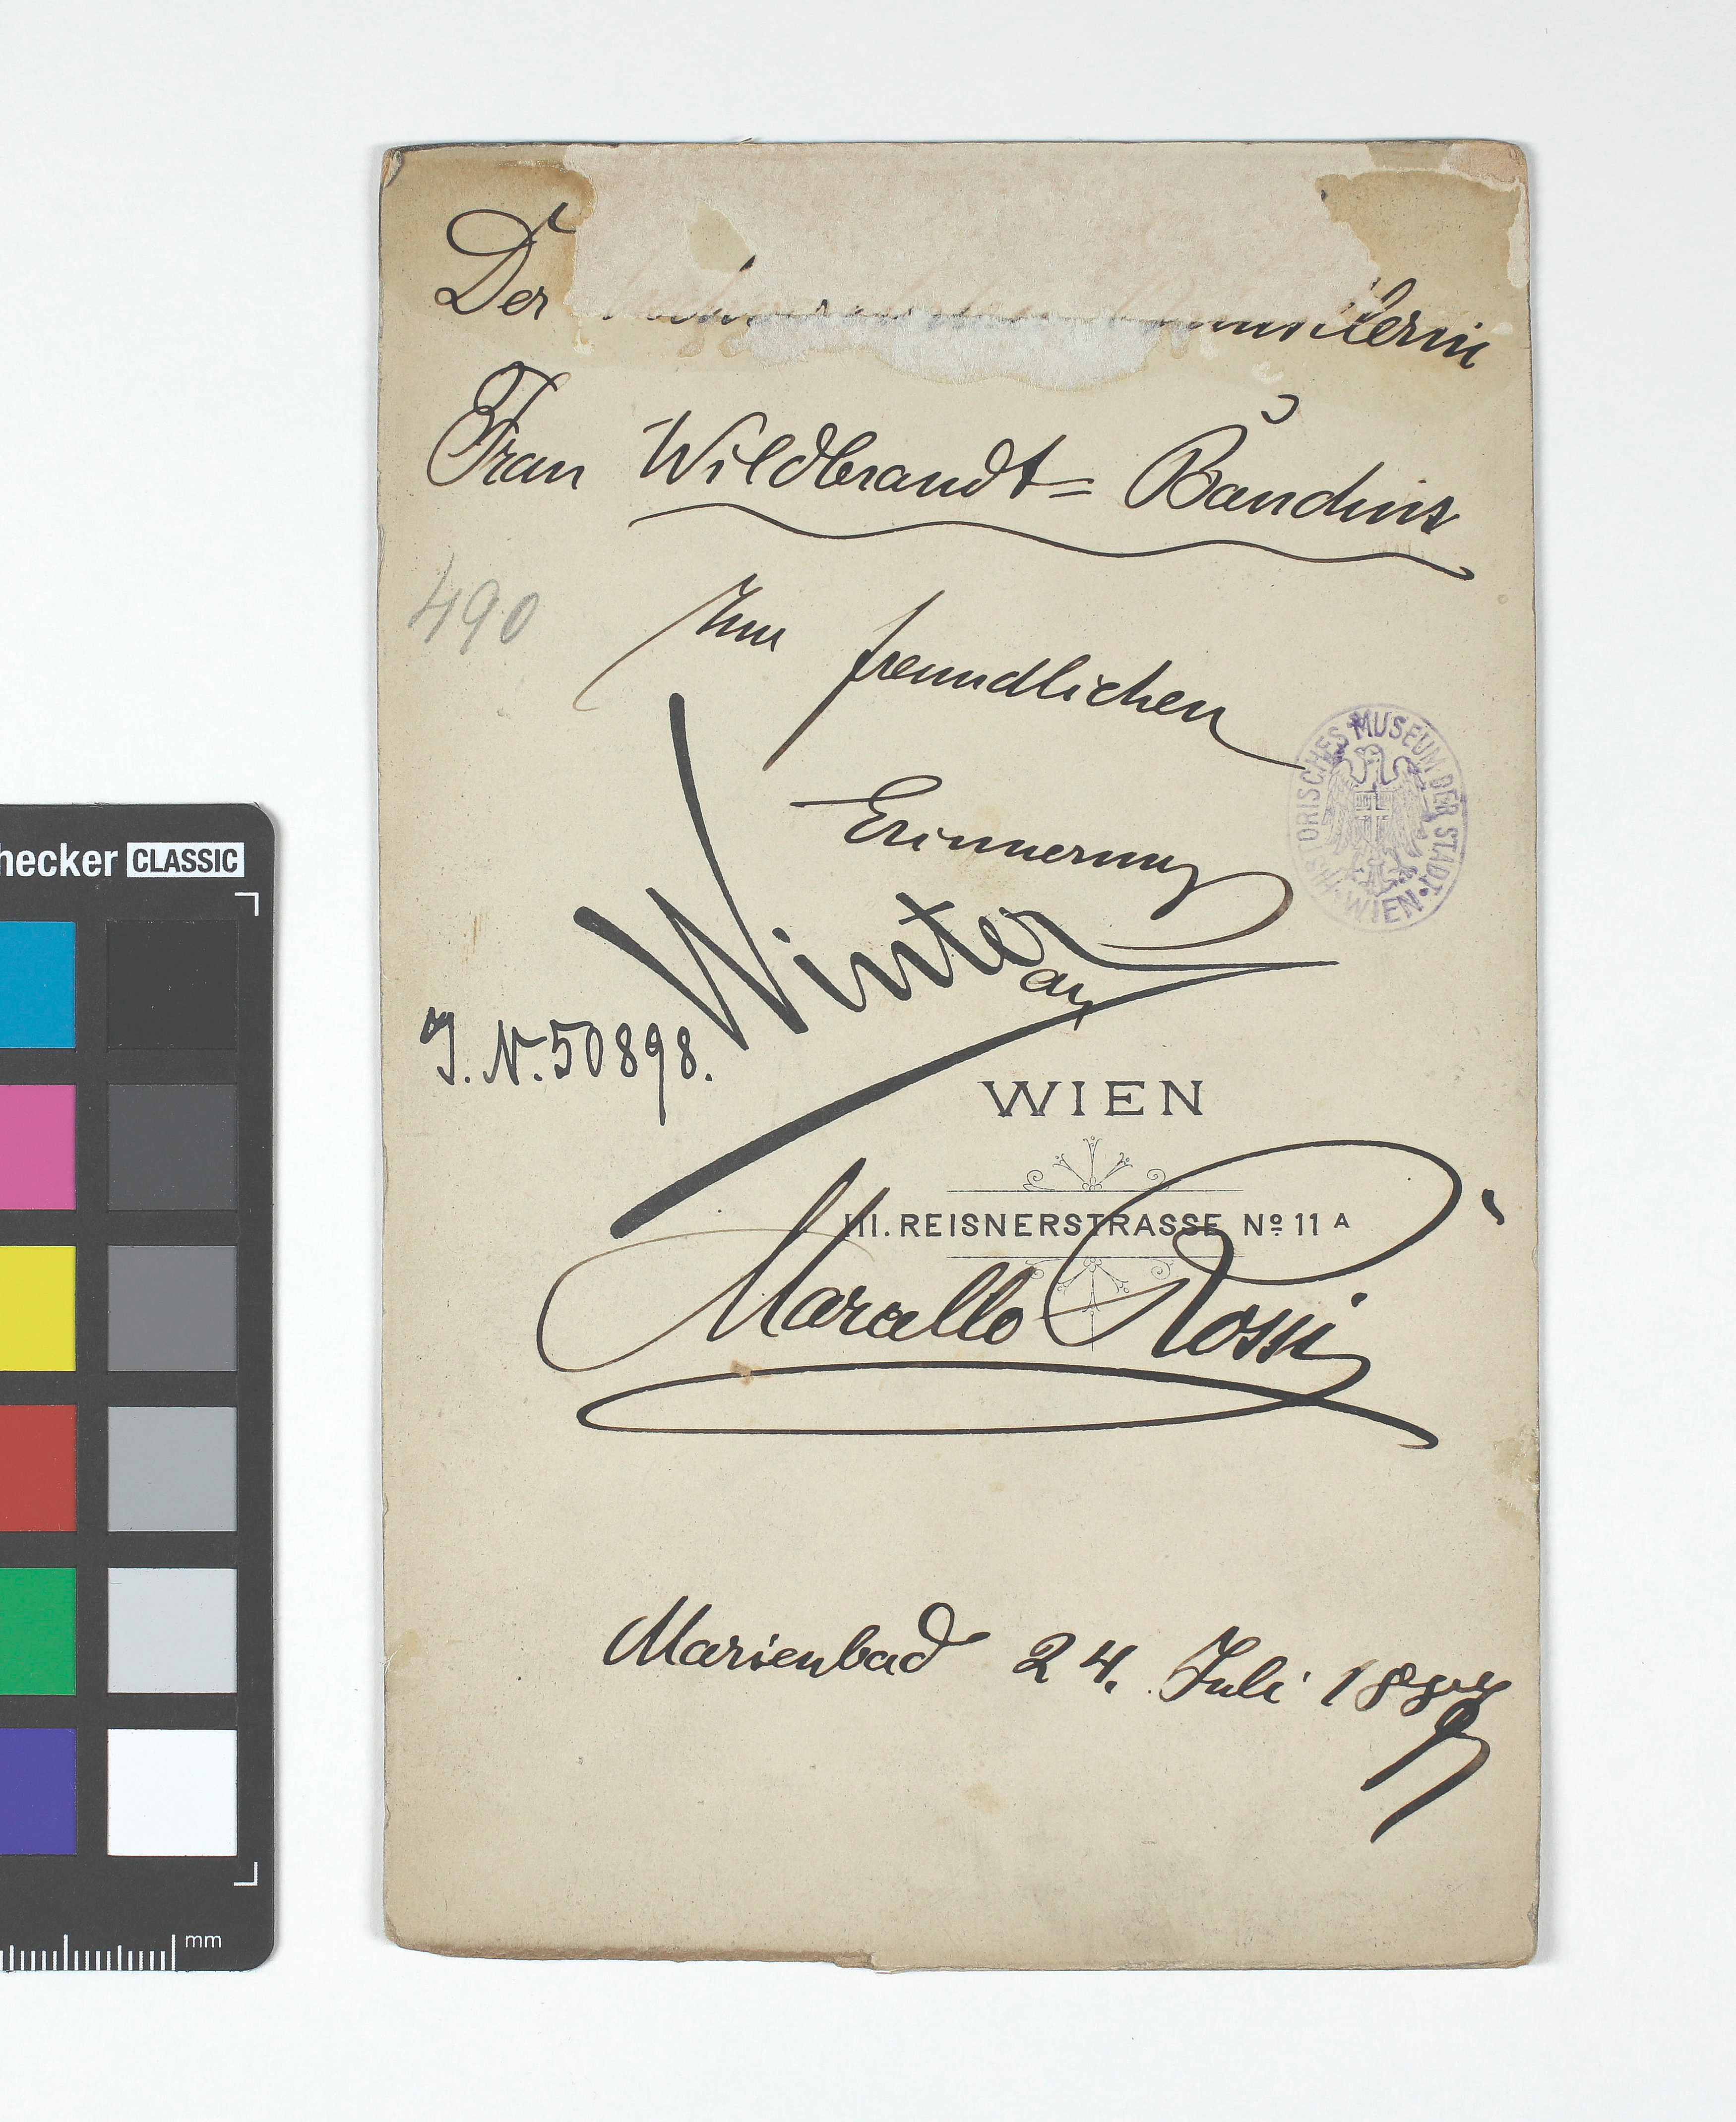 Der Künstlerin
Frau Wildbrandt= Baudius
490
Zur freundlichen
HISTORISCHES MUSEUM DER STADT • WIEN •
Erinnerung
Winter
an
J. N. 50898.
WIEN
III. REISNERSTRASSE No 11 A
Marcello Rossi
Marienbad 24. Juli
hecker CLASSIC
mm